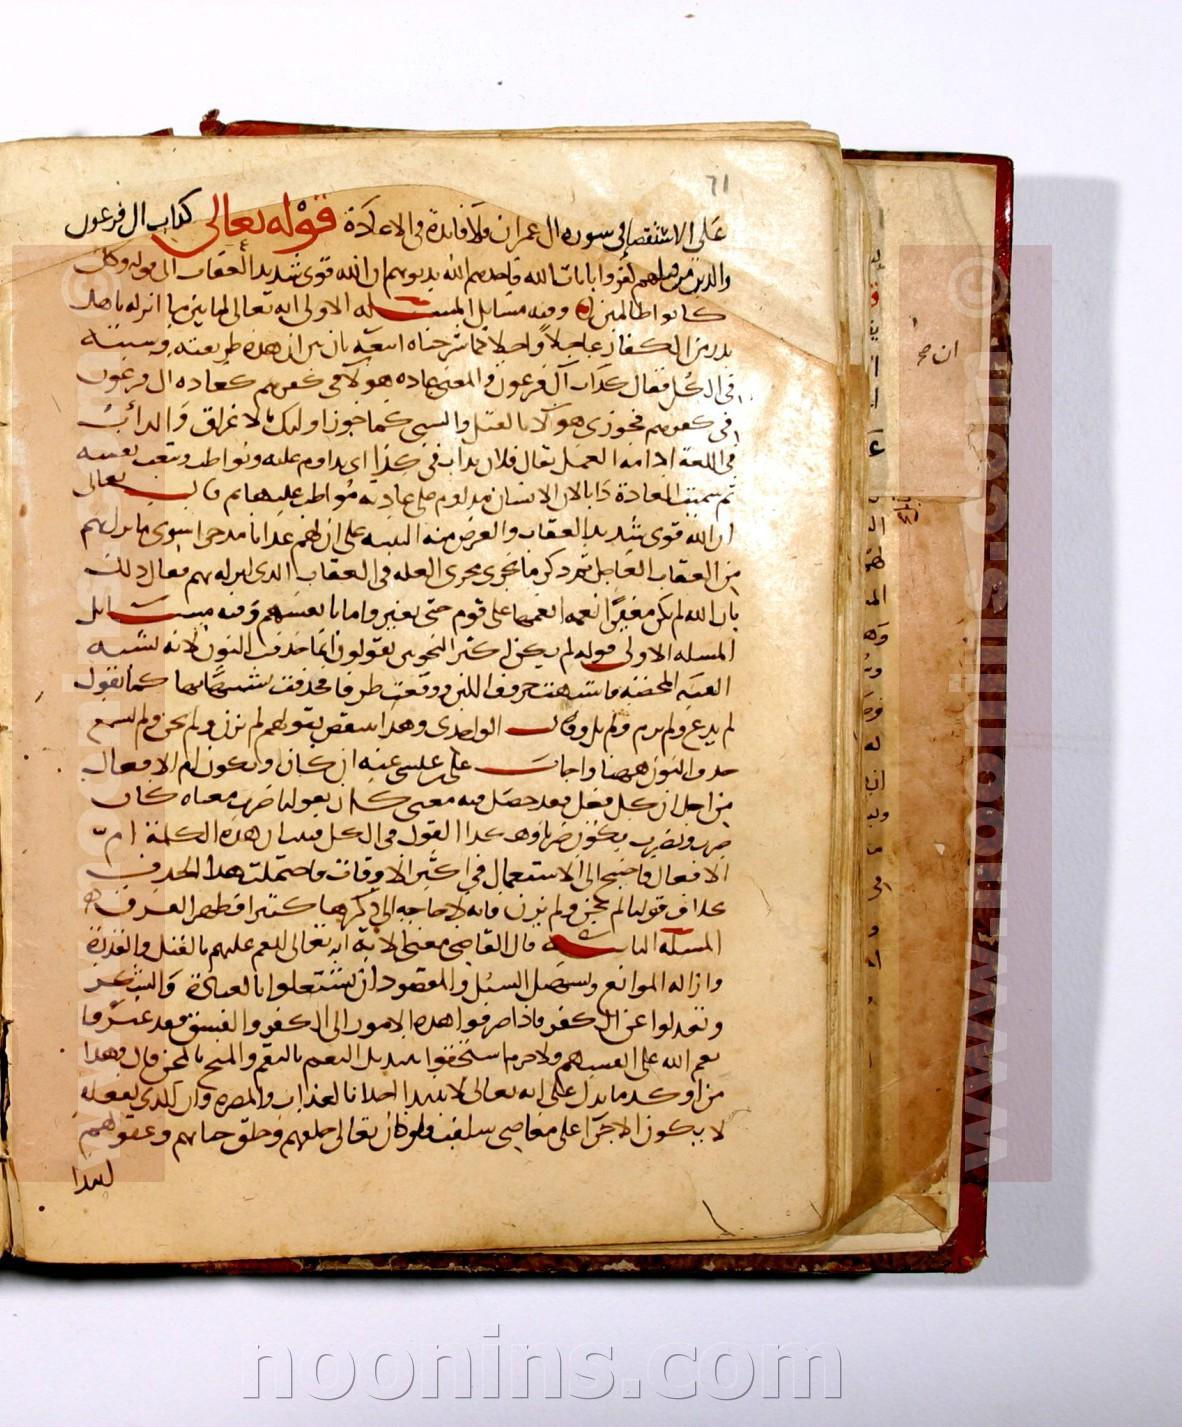 ٦١
على الاستقصا في سورة ال عمران ولا فايدة في الاعادة قوله تعالى كداب ال فرعون
والذين من قبلهم كفروا بايات الله فاخذهم الله بذنوبهم ان الله قوى شديد العقاب الى قوله وكل
كانوا ظالمين وفيه مسايل المسئله الاولى انه تعالى لما بين ما انزله باهل
بدر من الكفار عاجلا واجلا كما شرحناه اتبعه بان بين ان هذه طريقته وسنته
في الكل فقال كداب آل فرعون والمعنى عادة هولا في كفرهم كعادة ال فرعون
في كفرهم فجوزى هولا بالقتل والسبى كما جوزا اوليك بالاغراق والدأب
في اللغة ادامه العمل يقال فلان يداب في كذا اى يداوم عليه ويواظب ويتعب نفسه
ثم سميت العادة دابا لان الانسان مداوم على عادته مواظب عليها ثم قال تعالى
ان الله قوى شديد العقاب والغرض منه التنبيه على ان لهم عذابا مدخرا سوى ما نزل بهم
من العقاب العاجل ثم ذكر ما يجرى مجرى العله في العقاب الذى انزله بهم فقال ذلك
بان الله لم يك مغيرا نعمه انعمها على قوم حتى يغيروا ما بانفسهم وفيه مسايل
المسله الاولى قوله لم يك اكثر النحويين يقولون انما حذفت النون لانه لشبه
الغنه المحضه فاشبهت حروف اللين ووقعت طرفا فحذفت تشبيها بها كما تقول
لم يدع ولم يرم ولم يل وقال الواحدى وهذا ينتقض بقولهم لم يزن ولم يخن ولم يسمع
حذف النون ههنا واجاب على بن عيسى عنه ان كان ويكون ام الافعال
من اجل ان كل فعل فقد حصل فيه معنى كان فقولنا ضرب معناه كان
ضرب ويضرب يكون ضرب وهكذا القول في الكل فثبت ان هذه الكلمة ام
الافعال فاحتيج الى الاستعمال في اكثر الاوقات فاحتملت هذا الحذف
بخلاف قولنا لم يخن ولم يزن فانه لا حاجه الى ذكرها كثيرا فظهر الفرق
المسله الثانيه قال القاضى معنى الاية انه تعالى انعم عليهم بالعقل والقدرة
وازاله الموانع وتسهيل السبل والمقصود ان يشتغلوا بالعبادة والشكر
ويعدلوا عن الكفر فاذا صرفوا هذه الامور الى الكفر والفسق فقد غيروا
نعم الله على انفسهم ولا جرم استحقوا تبديل النعم بالنقم والمنح بالمحن قال وهذا
من اوكد ما يدل على انه تعالى لا يبتدا احدا بالعذاب والمضره وان الذى يفعله
لا يكون الا جزا على معاصى سلفت ولو كان تعالى خلقهم وخلق حياتهم وعقولهم
ابتدا
noonins.com